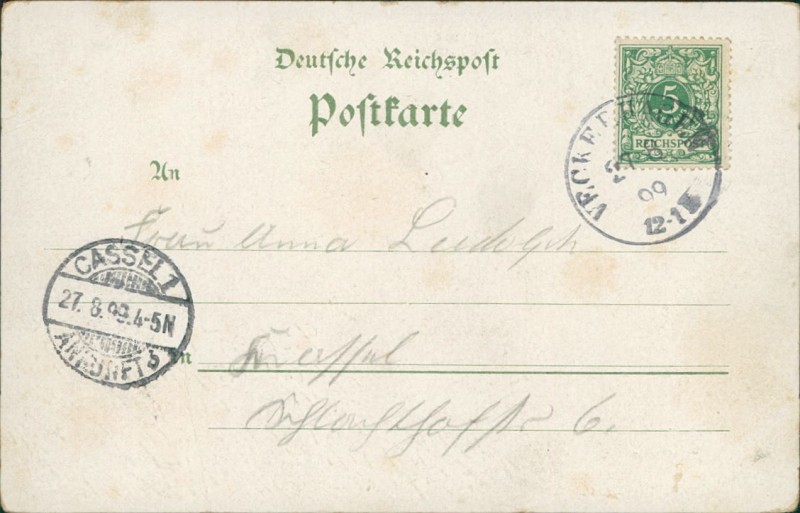 Deutsche Reichspost
Postkarte
5
REICHSPOST
VECKERHAGEN
27 8
99
12-1N
An
Frau Anna Ludolph
CASSEL 1
27. 8. 99. 4-5N
ANKUNFT
in
Cassel
Schlachthofstr 6.